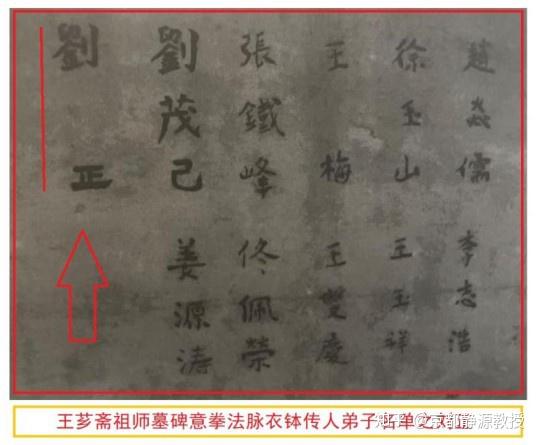 趙焱儒 李志浩
徐玉山 王玉祥
王梅 王雙慶
張鐵峰 佟佩榮
劉茂己 姜源濤
劉正
王芗斋祖师墓碑意拳法脉衣钵传人弟子
知乎 @京都静源教授